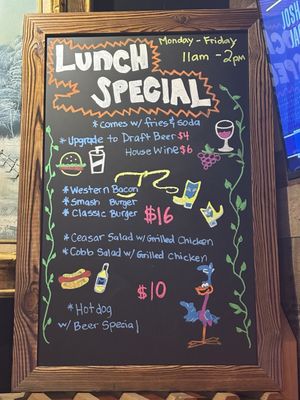 LUNCH
SPECIAL
Monday - Friday
11am - 2pm
* Comes w/ fries & soda
* Upgrade to Draft Beer $4
House Wine $6
* Western Bacon
* Smash Burger
* Classic Burger
$16
* Ceasar Salad w/ Grilled Chicken
* Cobb Salad w/ Grilled Chicken
$10
* Hotdog
w/ Beer Special